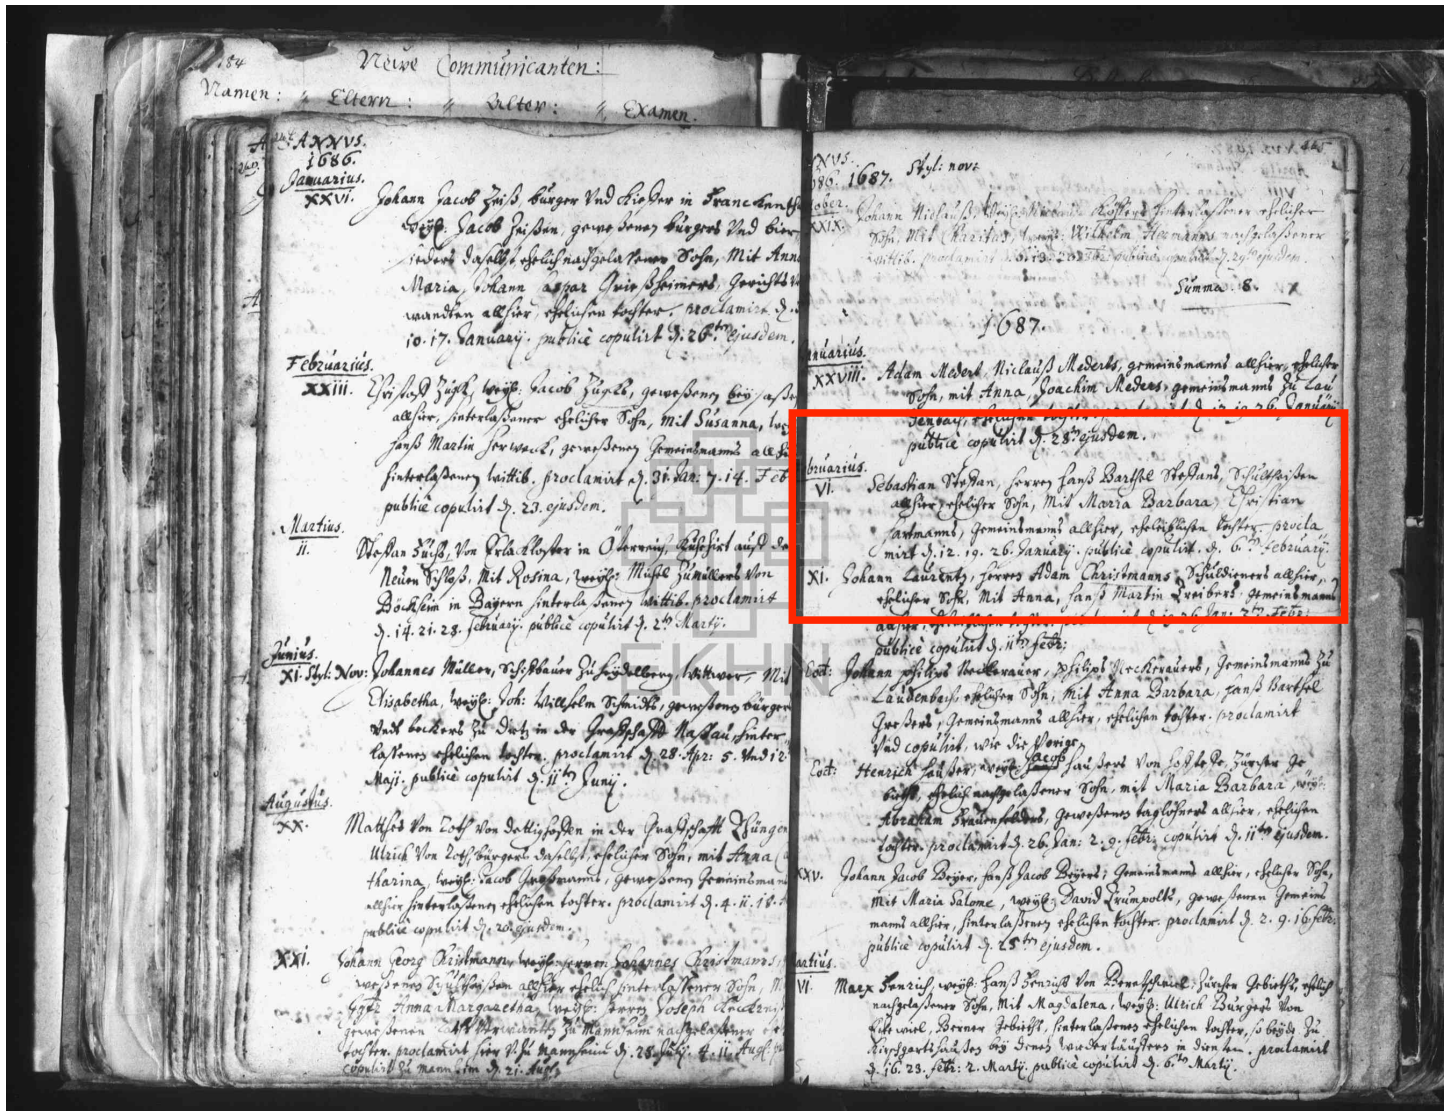 184
Newe Communicanten:
Namen: " Eltern: " Alter: " Examen.
ANNVS.
1686.
Januarius.
XXVI. Johann Jacob Zeiß, bürger Vnd Kießer in Franckenth
weyl: Jacob Zeißen, geweßenen bürgers Vnd bier
sieders daselbst, ehelich nachgelaßener Sohn, Mit Anna
Maria, Johann Caspar Grießheimers, Gerichts V
wandten allhier, ehelichen tochter. proclamirt d.
10. 17. January. publicè copulirt d. 26ten ejusdem.
Februarius.
XXIII. Jacob geweßenen beysaße
allhier, hinterlaßener ehelicher Sohn, Mit Susanna,
Hanß Martin Herweck, geweßenen Gemeinsmanns allhier
hinterlaßenen wittib. proclamirt d. 31. Jan: 7. 14. Feb
publicè copulirt d. 23. ejusdem.
Martius.
II. Steffan Fuchß, Von Erlacloster in Österreich, auff dem
Neuen Schloß, Mit Rosina, weyl: Michel Zumüllers Von
Böckheim in Bayern hinterlaßenen wittib. proclamirt
d. 14. 21. 28. february. publicè copulirt d. 2ten Marty.
Junius.
XI. Styl: Nov: Johannes Müller, Schiffbauer Zu Heydelberg, wittwer, Mit
Elisabetha, weyl: Joh: Willhelm Schmidts, geweßenen bürgers
Vndt beckers Zu Dietz in der Graffschafft Naßau, hinter
laßenen ehelichen tochter. proclamirt d. 28. Apr: 5. Vnd 12.
Maji. publicè copulirt d. 11ten Junij.
Augustus.
XX. Matthes Von Roth Von in der Graffschafft
Ulrich Von Roth, bürgers daselbst, ehelicher Sohn, mit Anna Ca
tharina, weyl: Jacob geweßenen Gemeinsmanns
allhier hinterlaßenen ehelichen tochter. proclamirt d. 4. 11. 18.
publicè copulirt d. 20. ejusdem.
XXI. Johann Georg Christmann, weyl: herren Johannes Christmanns,
weßenen Schultheyßen allhier ehelich hinterlaßener Sohn, M
Anna Margaretha, weyl: herren Joseph
geweßenen Rath Verwanten Zu Mannheim nachgelaßener ehe
tochter. proclamirt hier V. Zu Mannheim d. 28. July. 4. 11. Aug.
copulirt Zu Mannheim d. 21. Aug.
445
NNVS.
686. 1687. Styl: nov:
tober.
XXIX. Johann Niclauß, weyl: hinterlaßener ehelicher
Sohn, Mit Charitas, weyl: Wilhelm Hermanns nachgelaßener
wittib. proclamirt publicè copulirt d. 29ten ejusdem.
Summa. 8.
1687.
nuarius.
XXVIII. Adam Medert, Niclauß Mederts, gemeinsmanns allhier, ehelicher
Sohn, mit Anna, Joachim Meders, gemeinsmanns Zu Lau
denbach, ehelichen tochter. proclamirt d. 12. 19. 26. January
publicè copulirt d. 28ten ejusdem.
bruarius.
VI. Sebastian Steffan, herren Hanß Barthel Steffans, Schultheißen
allhier, ehelicher Sohn, Mit Maria Barbara, Christian
Hartmanns, Gemeinsmanns allhier, eheleiblichen tochter. procla
mirt d. 12. 19. 26. January. publicè copulirt d. 6ten february.
XI. Johann Laurentz, herren Adam Christmanns, Schuldieners allhier,
ehelicher Sohn, Mit Anna, Hanß Martin Treibers, gemeinsmanns
allhier, ehelichen tochter. proclamirt d. 19. 26. Jan: 2ten Febr:
publicè copulirt d. 11ten febr:
Eod: Johann Philips Neckerauer, Philips Neckerauers, Gemeinsmanns Zu
Laudenbach, ehelicher Sohn, Mit Anna Barbara, Hanß Barthel
Großers, Gemeinsmanns allhier, ehelichen tochter. proclamirt
Vnd copulirt, wie die Vorige.
Eod: Henrich Haußer, weyl: Jacob Haußers Von Zürcher Ge
bieths, ehelich nachgelaßener Sohn, mit Maria Barbara, weyl:
Abraham Frauenfelders, geweßenen taglöhners allhier, ehelichen
tochter. proclamirt d. 26. Jan: 2. 9. febr: copulirt d. 11ten ejusdem.
XXV. Johann Jacob Beyer, Hanß Jacob Beyers, Gemeinsmanns allhier, ehelicher Sohn,
Mit Maria Salome, weyl: David Krumpolts, geweßenen Gemeins
manns allhier, hinterlaßenen ehelichen tochter. proclamirt d. 2. 9. 16. febr:
publicè copulirt d. 25ten ejusdem.
artius.
VI. Marx Henrich, weyl: Hanß Henrichs Von Zürcher Gebieths, ehelich
nachgelaßener Sohn, Mit Magdalena, weyl: Ulrich Burgers Von
Berner Gebieths, hinterlaßenen ehelichen tochter, so beyde Zu
Kirschgarthaußen bey denen wiedertäuffern in diensten. proclamirt
d. 16. 23. febr: 2. Marty. publicè copulirt d. 6ten Marty.
EKHN